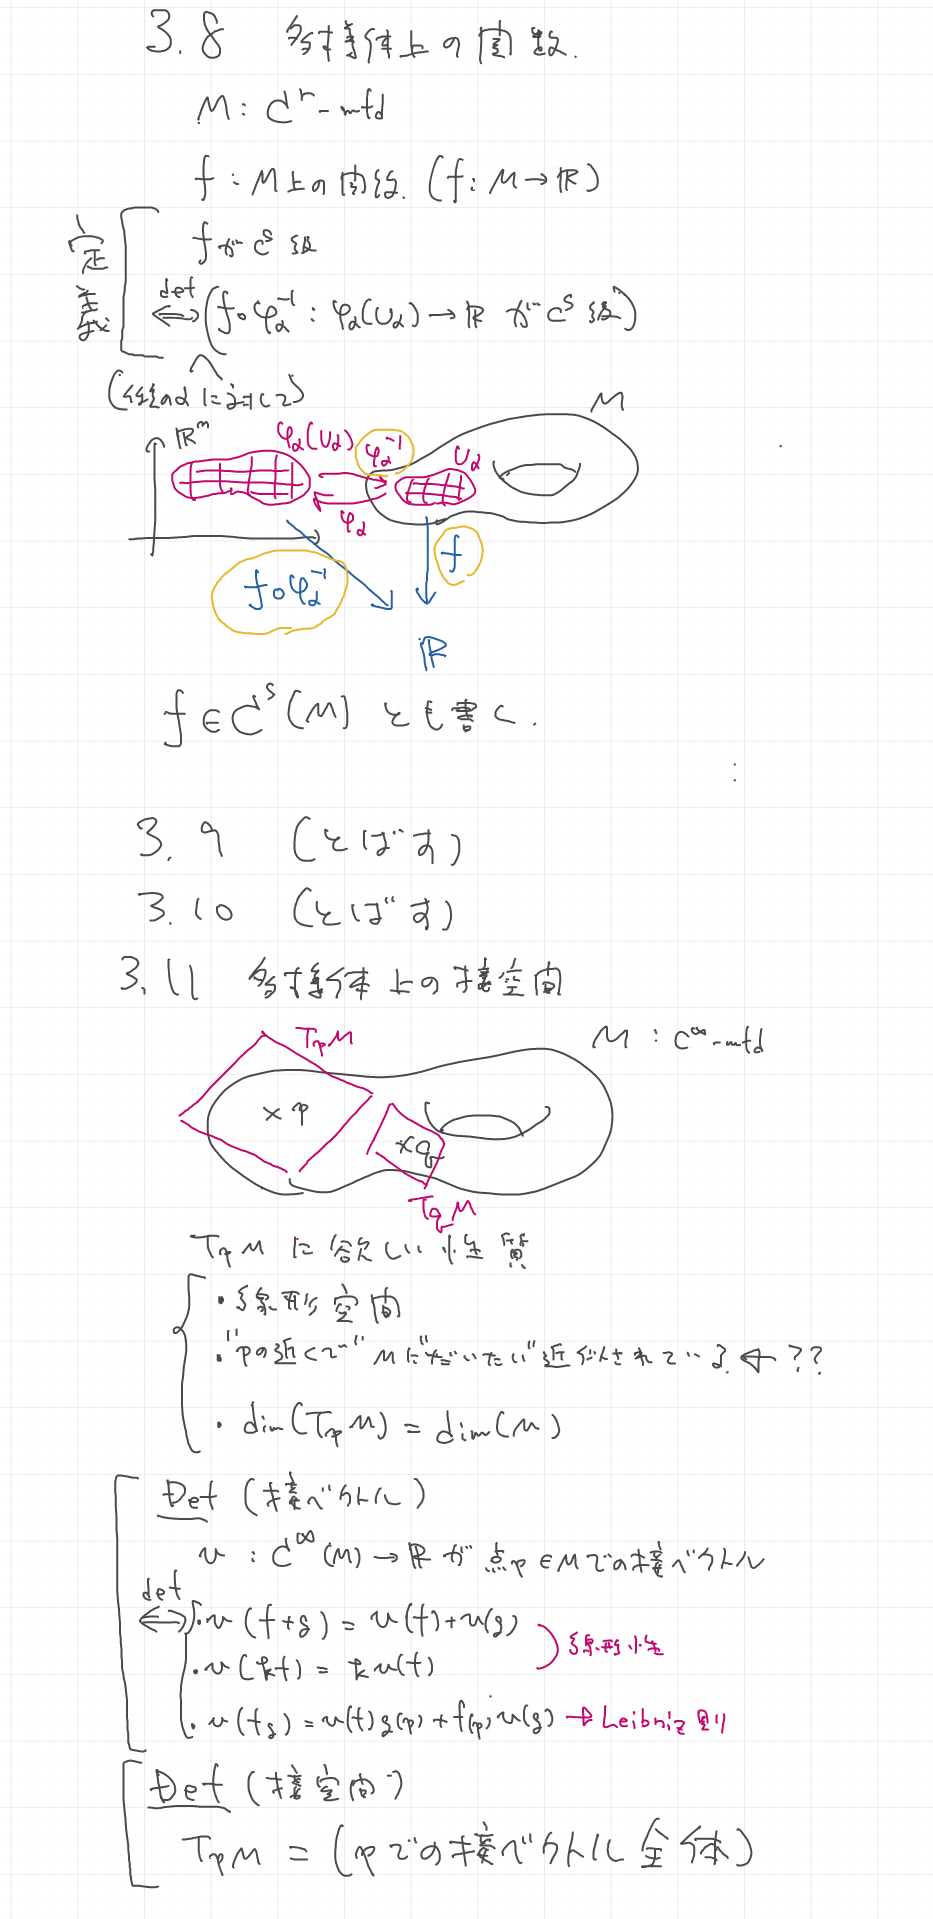 3.8 多様体上の関数.
M : C^r-mfd
f : M上の関数. (f : M → ℝ)
定義
fがC^s級
def
⟺ (f∘φ_α^{-1} : φ_α(U_α) → ℝ がC^s級)
(任意のαに対して)
M
ℝ^m
φ_α(U_α)
φ_α^{-1}
U_α
φ_α
f
f∘φ_α^{-1}
ℝ
f ∈ C^s(M) とも書く.
3.9 (とばす)
3.10 (とばす)
3.11 多様体上の接空間
T_pM
M : C^∞-mfd
×p
×q
T_qM
T_pM に欲しい性質
・線形空間
・"pの近くで" Mに"だいたい"近似されている. ← ??
・dim(T_pM) = dim(M)
Def (接ベクトル)
v : C^∞(M) → ℝ が点p∈Mでの接ベクトル
def
⟺ ・v(f+g) = v(f)+v(g)
・v(kf) = kv(f)
線形性
・v(fg) = v(f)g(p) + f(p)v(g) → Leibniz則
Def (接空間)
T_pM = (pでの接ベクトル全体)